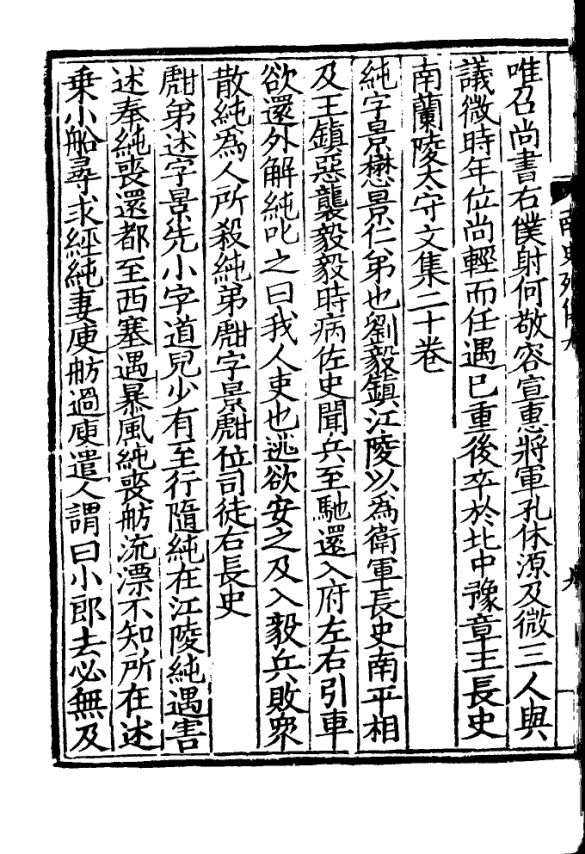 唯召尚書右僕射何敬容宣惠將軍孔休源及微三人與
議微時年位尚輕而任遇已重後卒於北中豫章王長史
南蘭陵太守文集二十卷
純字景懋景仁弟也劉毅鎮江陵以為衛軍長史南平相
及王鎮惡襲毅毅時病佐史聞兵至馳還入府左右引車
欲還外解純叱之曰我人吏也逃欲安之及入毅兵敗眾
散純為人所殺純弟甝字景甝位司徒右長史
甝弟述字景先小字道兒少有至行隨純在江陵純遇害
述奉純喪還都至西塞遇暴風純喪舫流漂不知所在述
乗小船尋求經純妻庾舫過庾遣人謂曰小郎去必無及